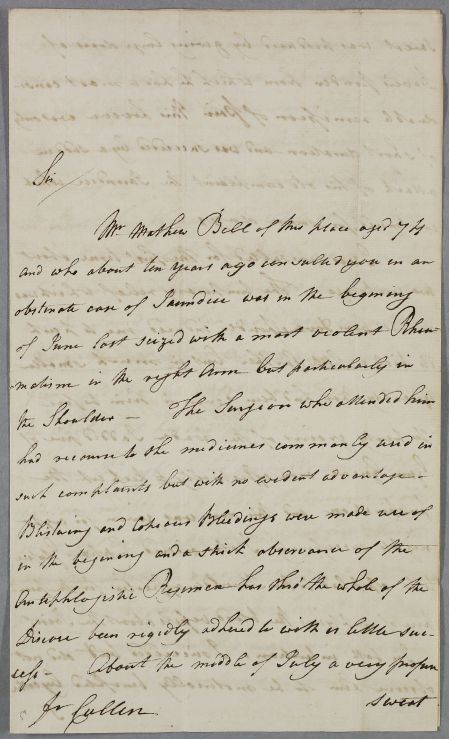 Sir
Mr Mathew Bell of this place aged 74
and who about ten years ago consulted you in an
obstinate case of Jaundice was in the begining
of June last seized with a most violent Rheu-
-matism in the right Arm but particularly in
the Shoulder — The Surgeon who attended him
had recourse to the medicines commonly used in
such complaints but with no evident advantage -
Blistering and Copious Bleedings were made use of
in the begining and a strict observance of the
Antiphlogistic Regimen has thro' the whole of the
Disease been rigidly adhered to with as little suc-
cess - About the middle of July a very profuse
sweat
Dr Cullen